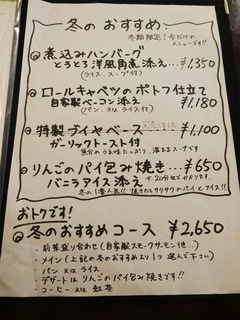 冬のおすすめ
冬期限定!今だけの
メニューです!!
◎煮込みハンバーグ
とろとろ洋風角煮添え…¥1,350
(ライス、スープ付)
◎ロールキャベツのポトフ仕立て
自家製ベーコン添え ¥1,180
(パン 又は ライス付)
◎特製ブイヤベース ¥1,100
ガーリックトースト付
魚介のうま味たっぷり、温まるスープです
◎りんごのパイ包み焼き…¥650
バニラアイス添え
冬の1番人気!!焼きたてサクサクのパイとアイス!!
おトクです!
◎冬のおすすめコース ¥2,650
・前菜盛り合わせ(自家製スモークサーモン他..)
・メイン(上記の冬のおすすめより1つ選んで下さい)
・パン 又は ライス
・デザートはりんごのパイ包み焼きです!!
・コーヒー 又は 紅茶